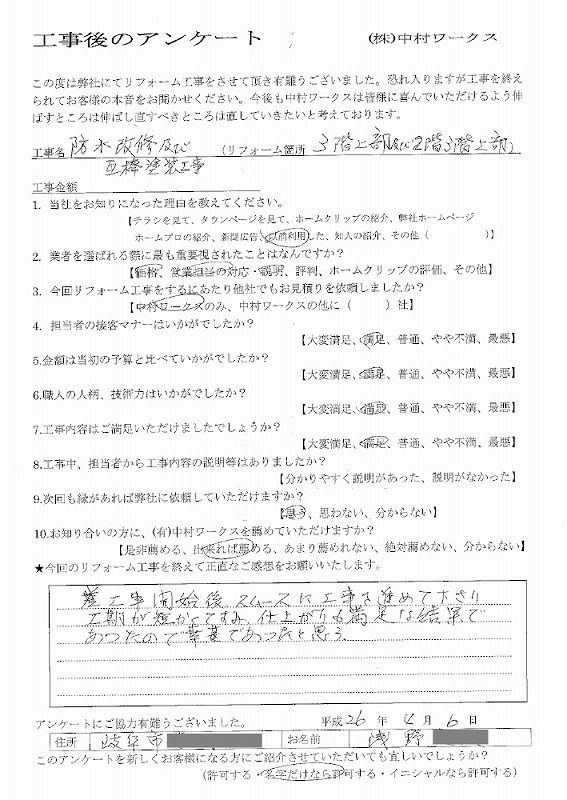 工事後のアンケート (株)中村ワークス
この度は弊社にてリフォーム工事をさせて頂き有難うございました。恐れ入りますが工事を終え
られてお客様の本音をお聞かせください。今後も中村ワークスは皆様に喜んでいただけるよう伸
ばすところは伸ばし直すべきところは直していきたいと考えております。
工事名 防水改修及び (リフォーム箇所 3階上部及び2階3階上部)
互棒塗装工事
工事金額
1. 当社をお知りになった理由を教えてください。
【チラシを見て、タウンページを見て、ホームクリップの紹介、弊社ホームページ
ホームプロの紹介、新聞広告、以前利用した、知人の紹介、その他( )】
2. 業者を選ばれる際に最も重要視されたことはなんですか?
【価格、営業担当の対応・説明、評判、ホームクリップの評価、その他】
3. 今回リフォーム工事をするにあたり他社でもお見積りを依頼しましたか?
【中村ワークスのみ、中村ワークスの他に( )社】
4. 担当者の接客マナーはいかがでしたか?
【大変満足、満足、普通、やや不満、最悪】
5.金額は当初の予算と比べていかがでしたか?
【大変満足、満足、普通、やや不満、最悪】
6.職人の人柄、技術力はいかがでしたか?
【大変満足、満足、普通、やや不満、最悪】
7.工事内容はご満足いただけましたでしょうか?
【大変満足、満足、普通、やや不満、最悪】
8.工事中、担当者から工事内容の説明等はありましたか?
【分かりやすく説明があった、説明がなかった】
9.次回も縁があれば弊社に依頼していただけますか?
【思う、思わない、分からない】
10.お知り合いの方に、(有)中村ワークスを薦めていただけますか?
【是非薦める、出来れば薦める、あまり薦めれない、絶対薦めない、分からない】
★今回のリフォーム工事を終えて正直なご感想をお願いいたします。
工事開始後スムースに工事を進めて下さり
工期が短かくてすみ、仕上がりも満足な結果で
あつたので幸甚であつたと思う。
アンケートにご協力有難うございました。 平成26年4月6日
住所 岐阜市 お名前 浅野
このアンケートを新しくお客様になる方にご紹介させていただいても宜しいでしょうか?
(許可する・名字だけなら許可する・イニシャルなら許可する)